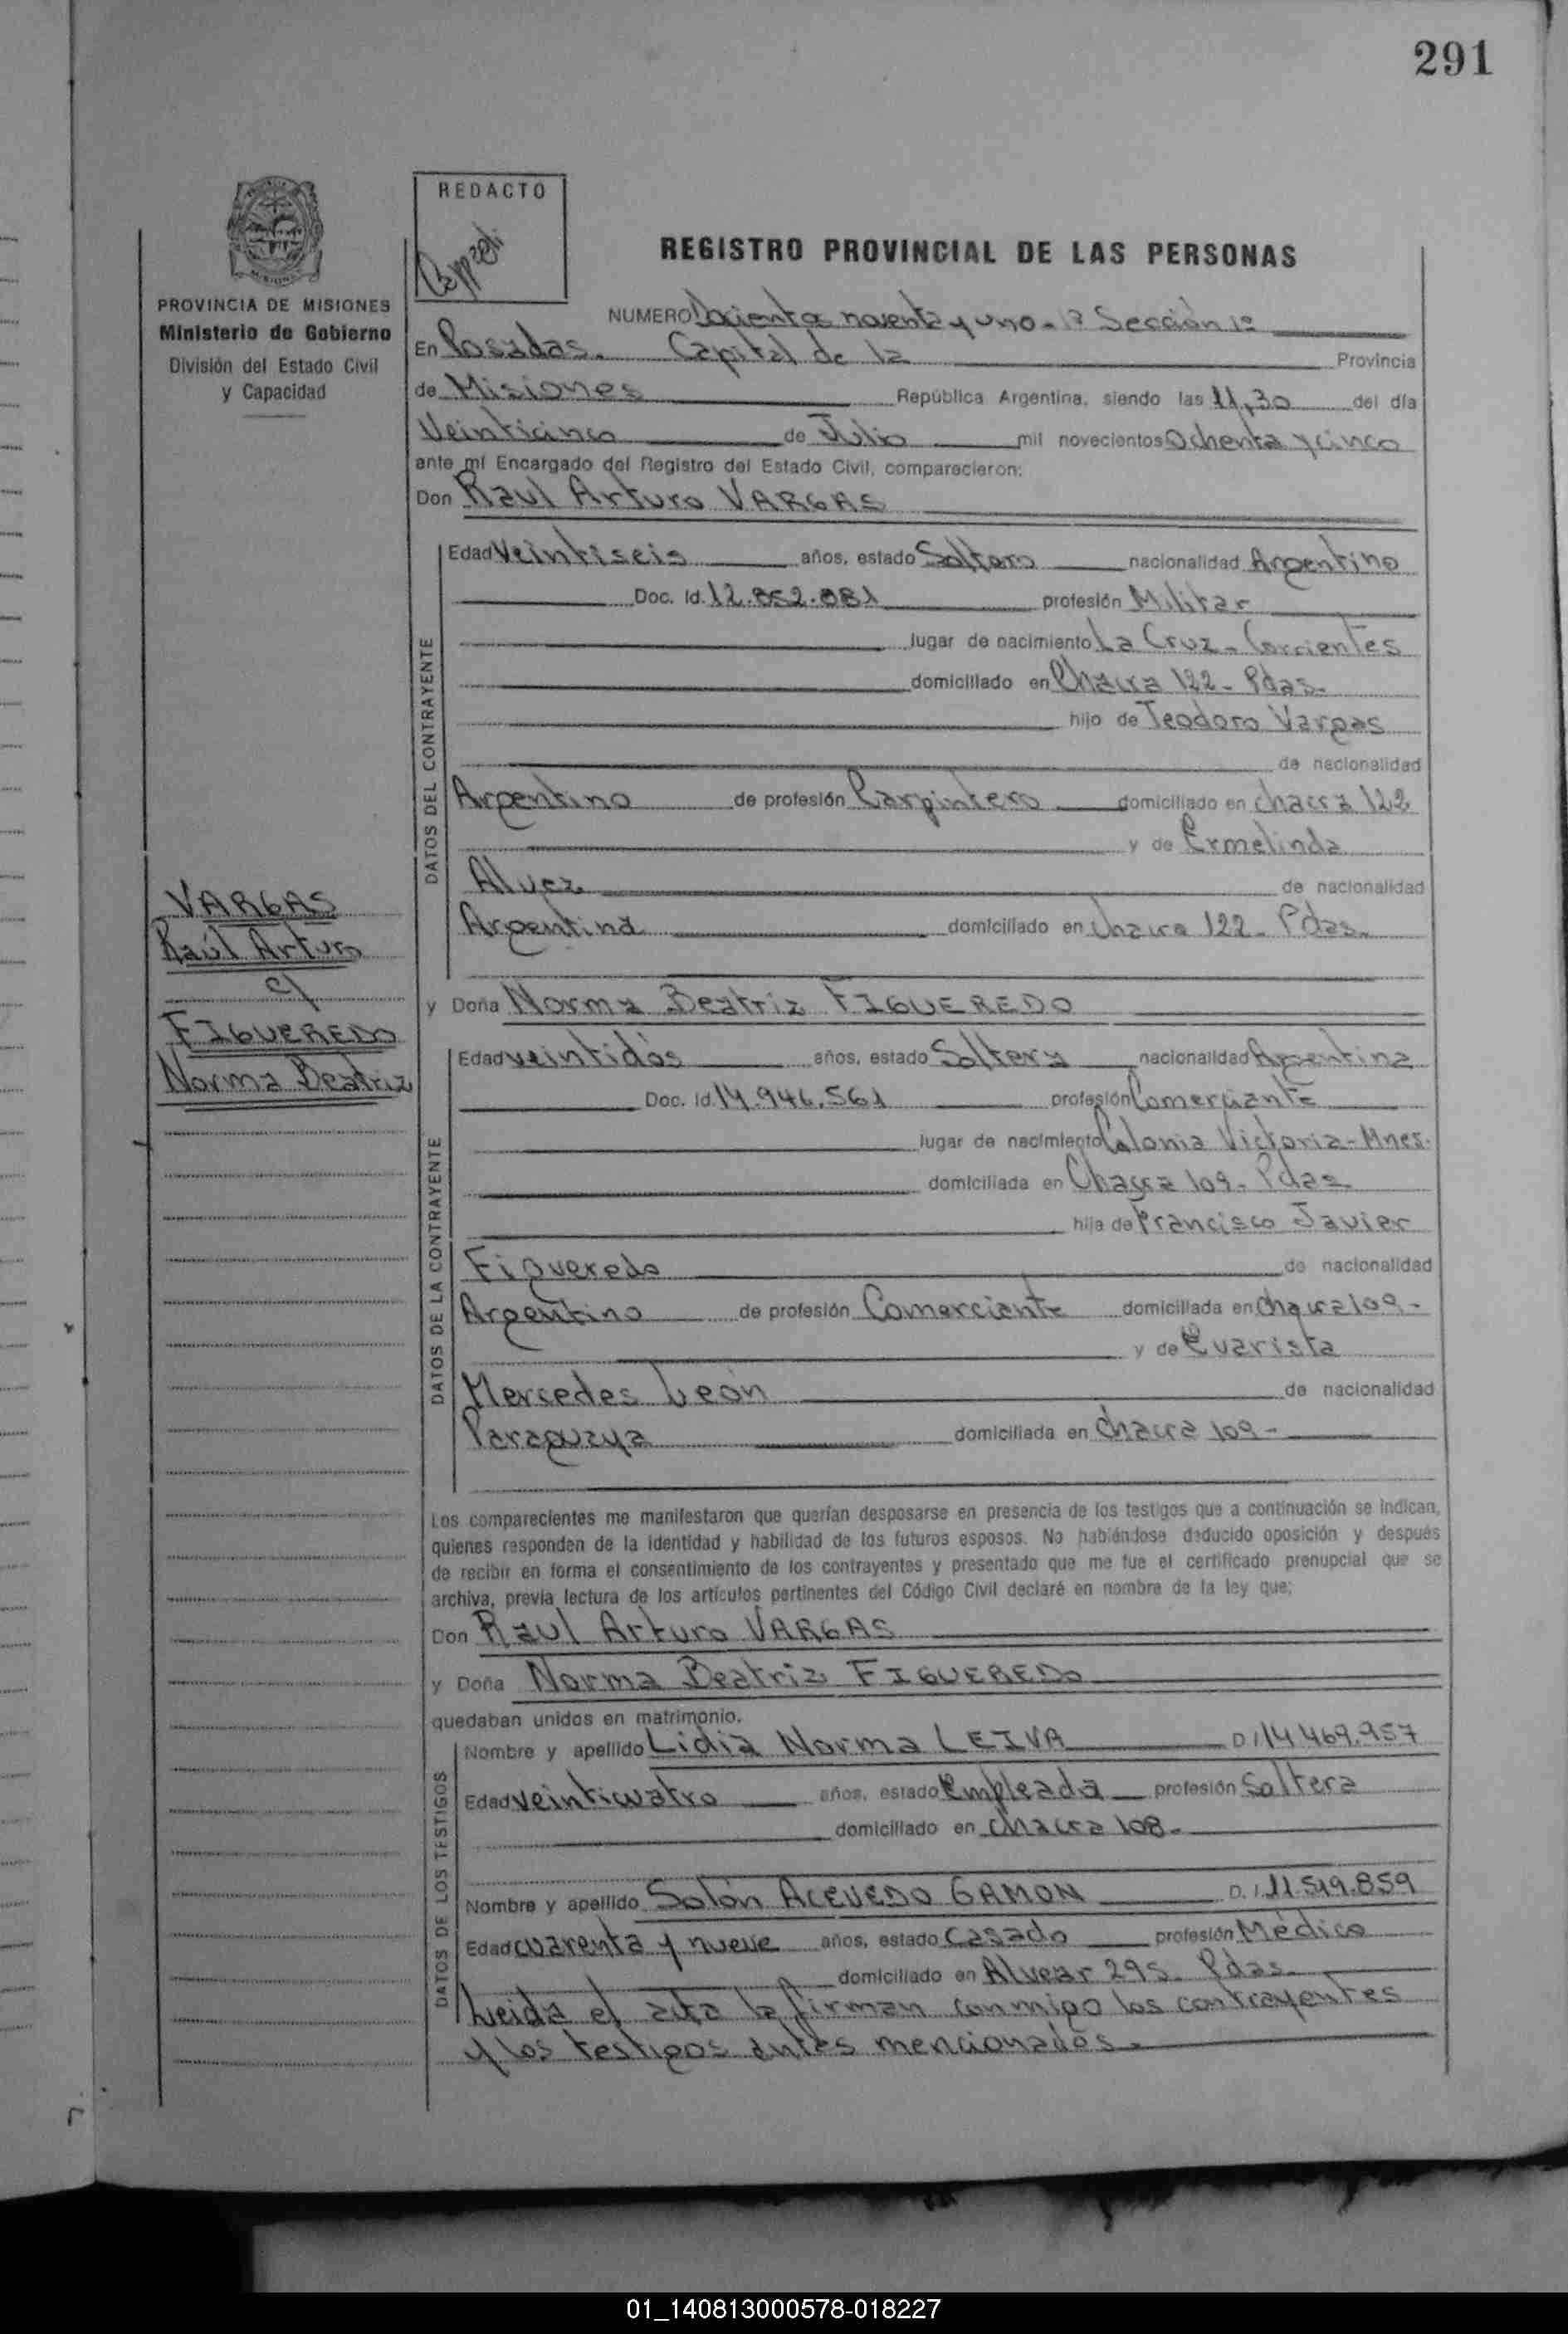 291
REDACTO
REGISTRO PROVINCIAL DE LAS PERSONAS
PROVINCIA DE MISIONES
Ministerio de Gobierno
División del Estado Civil
y Capacidad
NUMERO Docientos noventa y uno - Sección 1º
En Posadas. Capital de la Provincia
de Misiones República Argentina, siendo las 11,30 del día
Veinticinco de Julio mil novecientos Ochenta y cinco
ante mí Encargado del Registro del Estado Civil, comparecieron:
Don Raul Arturo VARGAS
DATOS DEL CONTRAYENTE
Edad Veintiseis años, estado Soltero nacionalidad Argentino
Doc. Id. 12.852.881 profesión Militar
lugar de nacimiento La Cruz - Corrientes
domiciliado en Chacra 122 - Pdas.
hijo de Teodoro Vargas
de nacionalidad
Argentino de profesión Carpintero domiciliado en chacra 122
y de Ermelinda
Alvez de nacionalidad
Argentina domiciliado en Chacra 122 - Pdas.
VARGAS
Raúl Arturo
c/
FIGUEREDO
Norma Beatriz
y Doña Norma Beatriz FIGUEREDO
DATOS DE LA CONTRAYENTE
Edad veintidós años, estado Soltera nacionalidad Argentina
Doc. Id 14.946.561 profesión Comerciante
lugar de nacimiento Colonia Victoria - Mnes.
domiciliada en Chacra 109 - Pdas
hija de Francisco Javier
Figueredo de nacionalidad
Argentino de profesión Comerciante domiciliada en chacra 109 -
y de Evarista
Mercedes León de nacionalidad
Paraguaya domiciliada en chacra 109 -
Los comparecientes me manifestaron que querían desposarse en presencia de los testigos que a continuación se indican,
quienes responden de la identidad y habilidad de los futuros esposos. No habiéndose deducido oposición y después
de recibir en forma el consentimiento de los contrayentes y presentado que me fue el certificado prenupcial que se
archiva, previa lectura de los artículos pertinentes del Código Civil declaré en nombre de la ley que;
Don Raul Arturo VARGAS
y Doña Norma Beatriz FIGUEREDO
quedaban unidos en matrimonio.
DATOS DE LOS TESTIGOS
Nombre y apellido Lidia Norma LEIVA D.I 14.469.957
Edad veinticuatro años, estado Empleada profesión Soltera
domiciliado en chacra 108 -
Nombre y apellido Solón ACEVEDO GAMON D.I. 11.519.859
Edad cuarenta y nueve años, estado Casado profesión Médico
domiciliado en Alvear 295 - Pdas.
Leida el acta la firman conmigo los contrayentes
y los testigos antes mencionados.
01_140813000578-018227